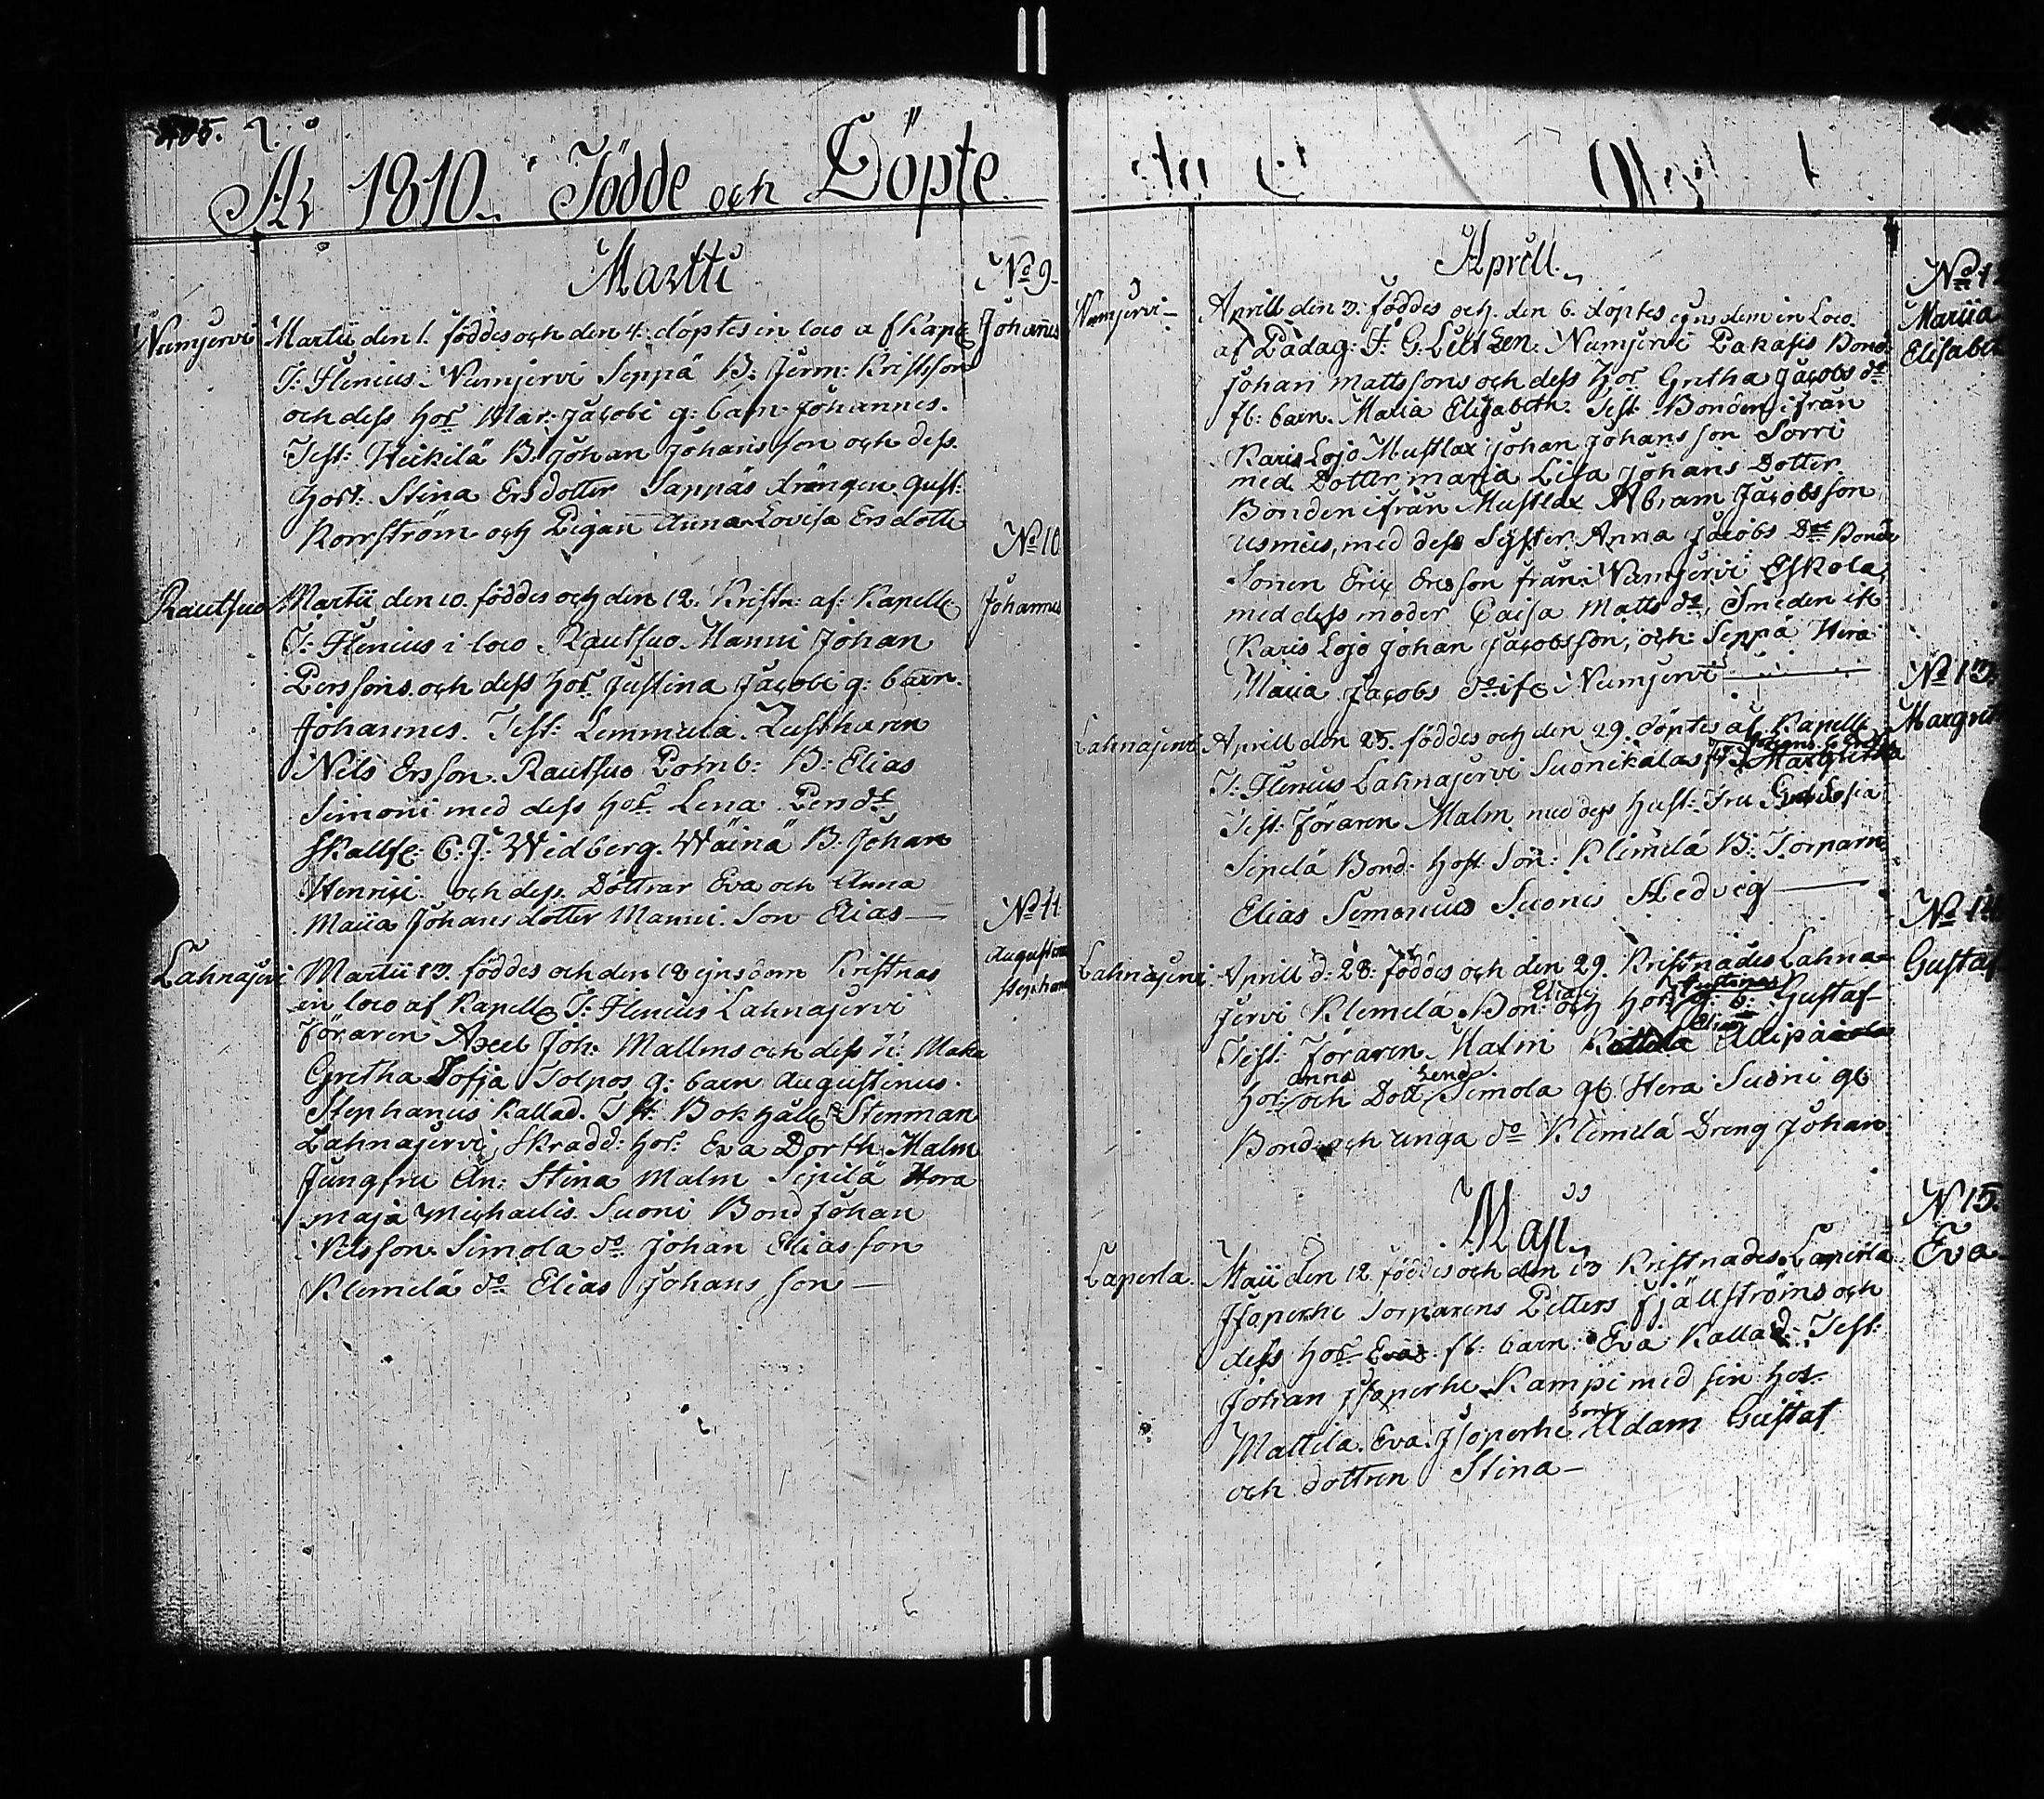 År 1810. Födde och Döpte.
Martii
No 9.
Numjervi
Martii den 1. föddes och den 4. döptes in loco af Kapel
Johannes
J: Flenius. Numjervi Seppä B. Jerm: Kristsson
och dess hor Mar: Jacobi g: barn Johannes.
Test: Heikilä B. Johan Johansson och dess
host. Stina Ersdotter Sappäs drängen Gust:
Korrström och Pigan Anna Lovisa Ersdotte
No 10
Rautsuo
Martii den 10. föddes och den 12. Kristn: af: Kapell
Johannes
J: Flenius i loco Rautsuo Manni Johan
Perssons och dess hor Justina Jacobi g: barn
Johannes. Test: Lemmula
Nils Ersson. Rautsuo B: Elias
Simoni med dess hor Lena Persdr
C: J: Widberg. Wäinä B. Johan
Henrici och dess Döttrar Eva och Anna
Maija Johansdotter Manni Son Elias —
No 11.
Lahnajervi
Martii 13. föddes och den 18 ejusdem Kristnas
Augustinus
Stephan
in loco af Kapell J: Flenius Lahnajervi
Föraren Axel Joh: Mallms och dess K: Maka
Gretha Sofja Tolpos g: barn Augustinus
Stephanus Kallad. Test: Bokhåll Stenman
Lahnajervi, Skradd: hor: Eva Dorth: Malm
Jungfru An: Stina Malm Sipilä Hora
Maja Michaelis Suoni Bond Johan
Nilsson. Simola do Johan Eliasson
Klemelä do Elias Johansson —
Aprill
No 1
Numjervi —
Aprill den 3. föddes och den 6. döptes ejusdem in Loco
Mariia
Elisabet
af Pädag: F. G. Numjervi Pakasis Bond
Johan Mattssons och dess hor Gretha Jacobs dr
fl: barn. Maria Elisabeth. Test: Bonden ifrån
Karis Lojo Mustlax Johan Johansson Sorri
med Dotter Maja Lisa Johans Dotter
Bonden ifrån Mustlax Abram Jacobsson
med dess Syster Anna Jacobs Dr Bonde
Sonen Eric Ersson från Numjervi Eskola
med dess moder Caisa Matts dr, Smeden if
Karis Lojo Johan Jacobsson, och Seppä Hera
Maiia Jacobs dr if: Numjervi —
No 13.
Lahnajervi
Aprill den 25. föddes och den 29. döptes af Kapell
Margret
J: Flenius Lahnajervi Suonikalas
Margretha
Test: Föraren Malm med dess Hust: Fru Sofia
Sipilä Bond: host: Son: Klemelä B: Torparn
Elias Simonius Suoni Hedvig —
No 14
Lahnajervi
Aprill d: 28: föddes och den 29. Kristnades Lahna-
Gustaf
jervi Klemelä Bon: Elias och hor: Justinas g: b: Gustaf
Test: Föraren Malm
hor: Anna och Dott Lena. Simola gb Hera Suoni gb
Bond och unga do Klemelä Dreng Johan
Maji
N 15.
Laperla.
Maii den 12 föddes och den 13 Kristnades Laperla
Eva
Isoperhe Torparens Petters Fjällströms och
dess hor Evas fl: barn: Eva Kallad. Test:
Johan Isoperhe Kampi med sin hor
Mattila. Eva. Isoperhe Son Adam Gustaf
och dottren Stina —